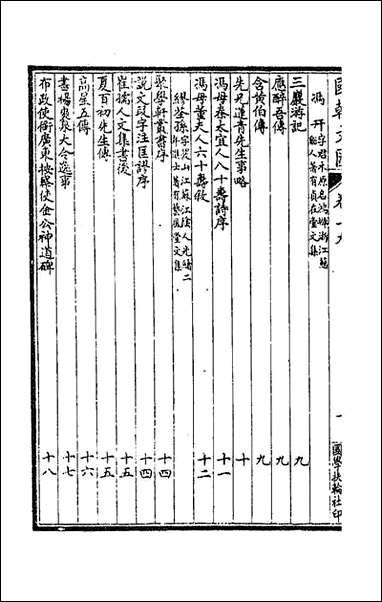 國朝文匯 卷十九 一 國學扶輪社印
馮幵 字君木原名鴻墀浙江慈谿人著有貞在堂文集
三巖游記 九
應醉吾傳 九
含黃伯傳 九
先兄蓮青先生事略 十
馮母秦太宜人八十壽詩序 十一
馮母董夫人六十壽敘 十二
繆荃孫 字筱山江蘇江陰人光緒二年進士著有藝風堂文集
聚學軒叢書序 十四
說文段字注匡謬序 十四
崔孺人文集書後 十五
夏百初先生傳 十五
高星五傳 十六
書楊泉大令逸事 十七
布政使銜廣東按察使金公神道碑 十八